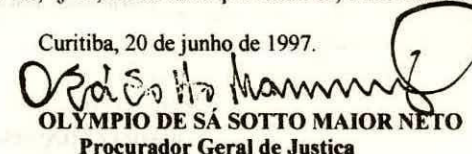 Curitiba, 20 de junho de 1997.
OLYMPIO DE SÁ SOTTO MAIOR NETO
Procurador Geral de Justiça